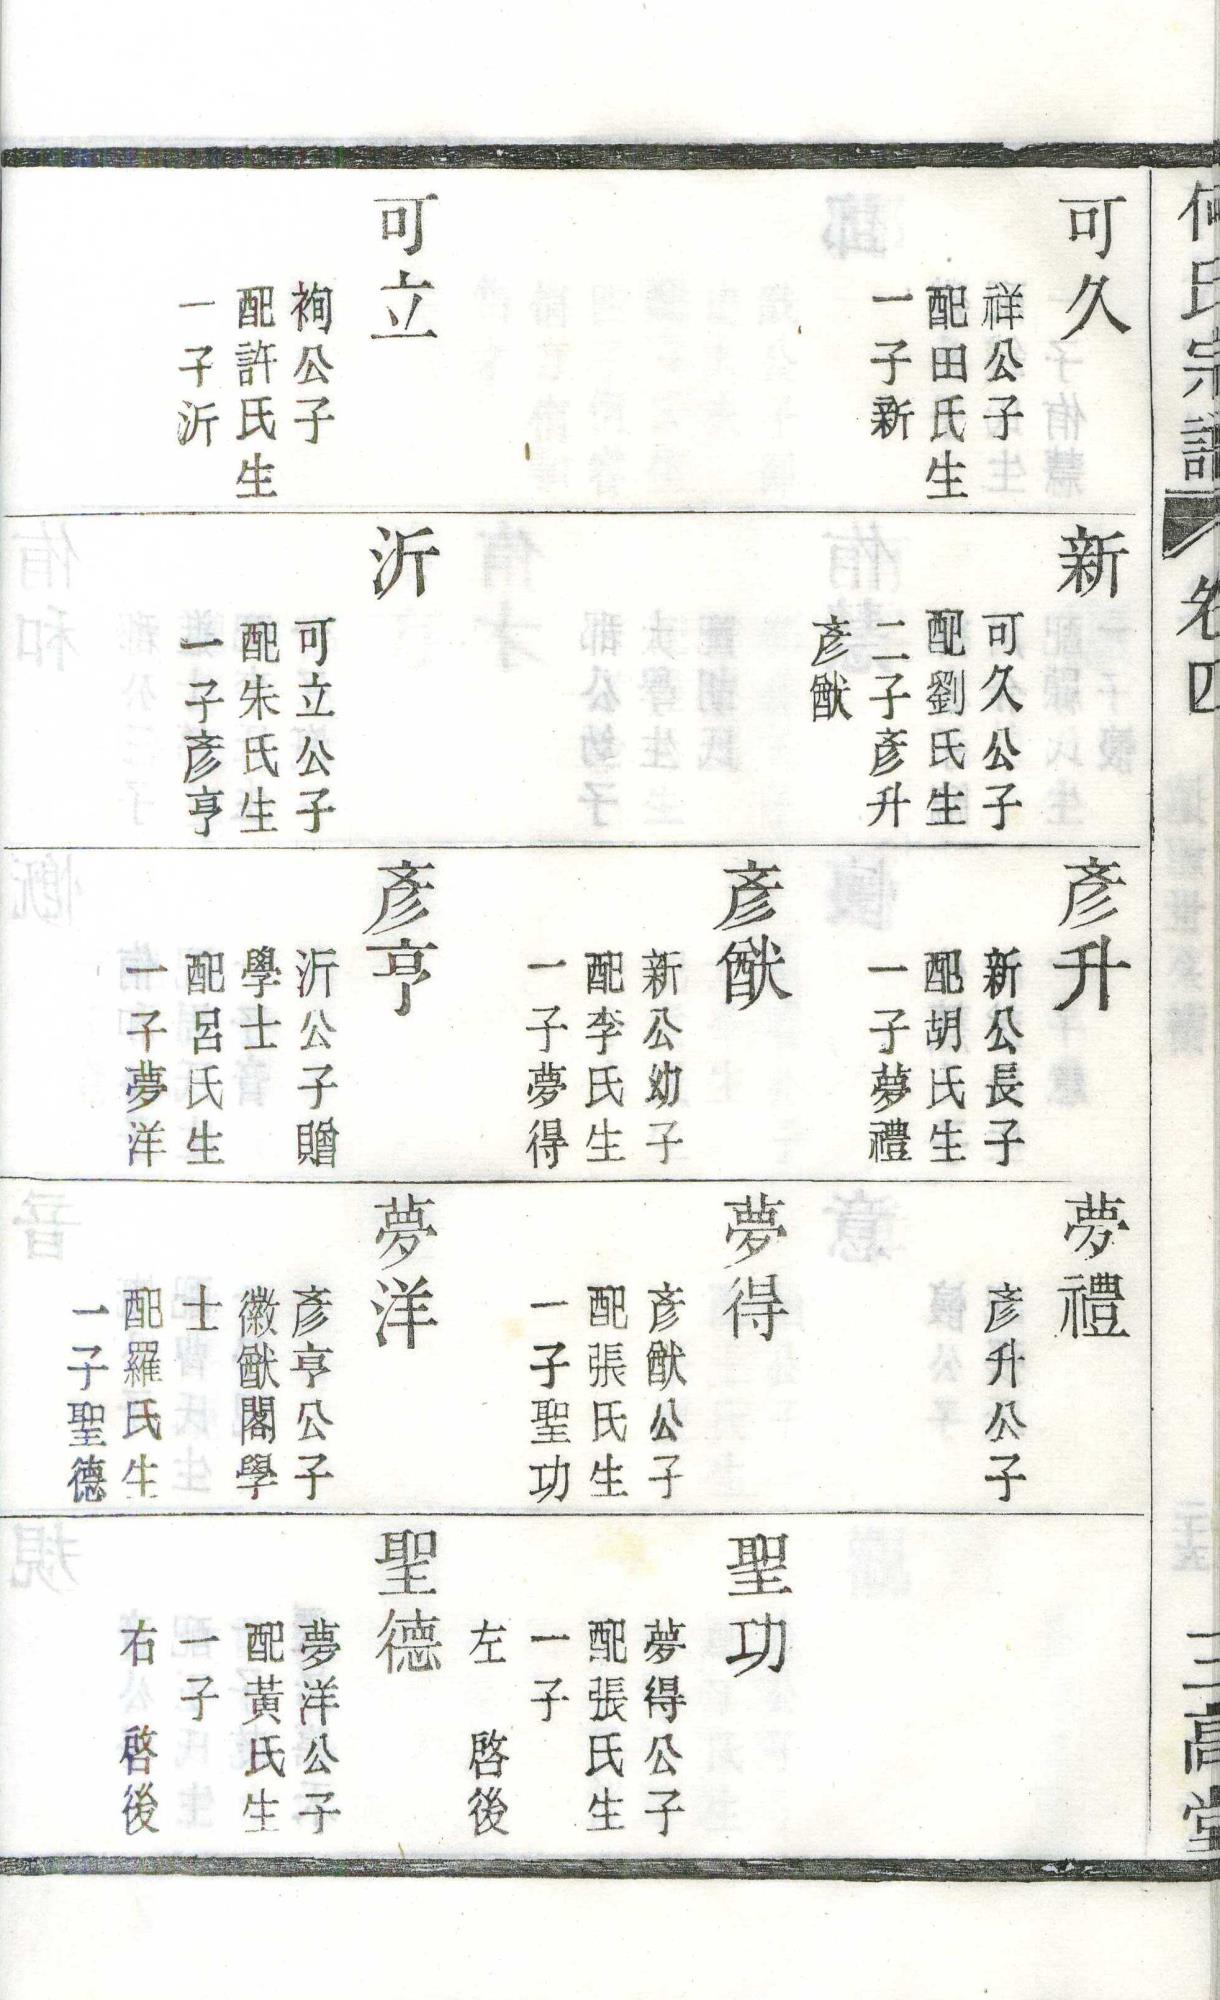 何氏宗譜
卷四
三高堂
可久
祥公子
配田氏生
一子新
可立
祹公子
配許氏生
一子沂
新
可久公子
配劉氏生
二子彥升
彥猷
沂
可立公子
配朱氏生
一子彥亨
彥升
新公長子
配胡氏生
一子夢禮
彥猷
新公幼子
配李氏生
一子夢得
彥亨
沂公子贈
學士
配呂氏生
一子夢洋
夢禮
彥升公子
夢得
彥猷公子
配張氏生
一子聖功
夢洋
彥亨公子
徽猷閣學
士
配羅氏生
一子聖德
聖功
夢得公子
配張氏生
一子
左 啓後
聖德
夢洋公子
配黃氏生
一子
右 啓後